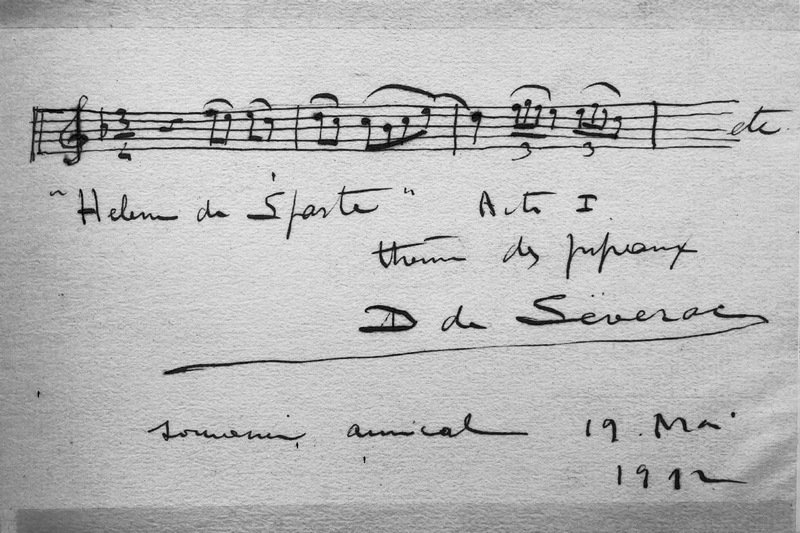 3
4
3 3
etc
"Hélène de Sparte" Acte I
thème des pipeaux
D de Séverac
souvenir amical 19 Mai
1912